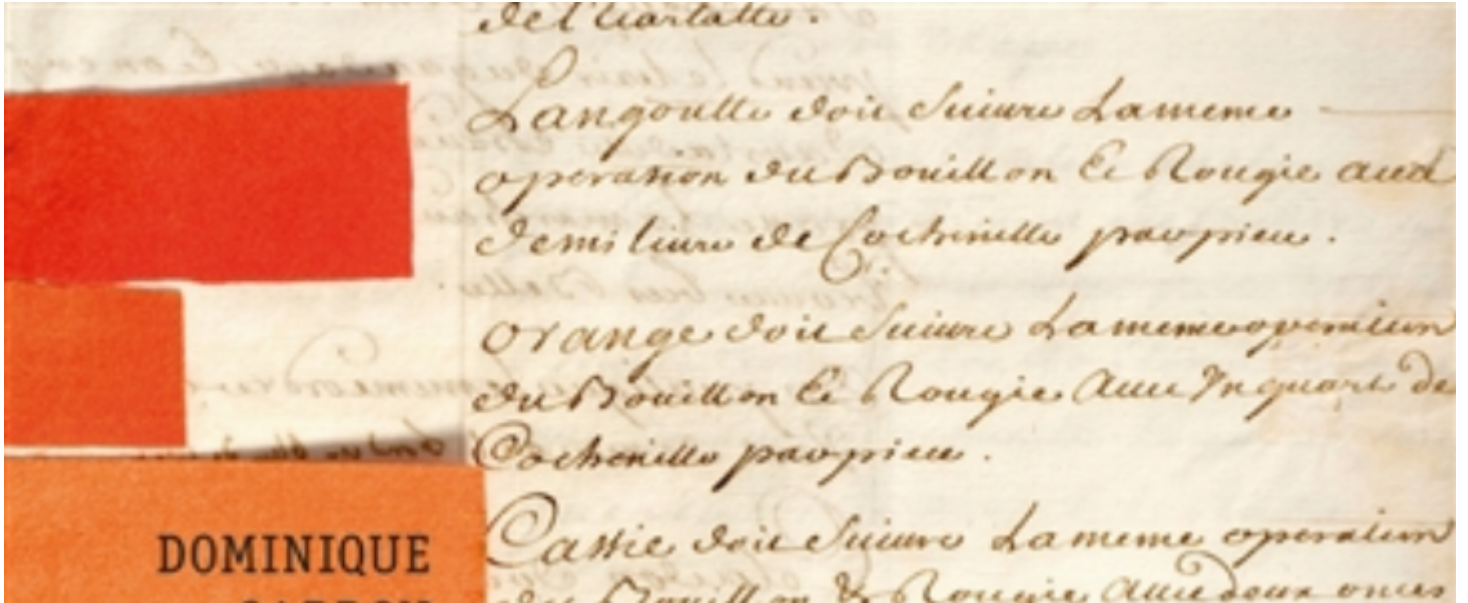 de l'Ecarlatte.
Langoutte doit Suivre La meme
operation du Bouillon Et Rougie avec
demi livre de Cochenille par piece.
orange doit Suivre La meme operation
du Bouillon Et Rougie avec Un quart de
Cochenille par piece.
Cassie doit Suivre La meme operation
du Bouillon & Rougie avec deux onces
DOMINIQUE